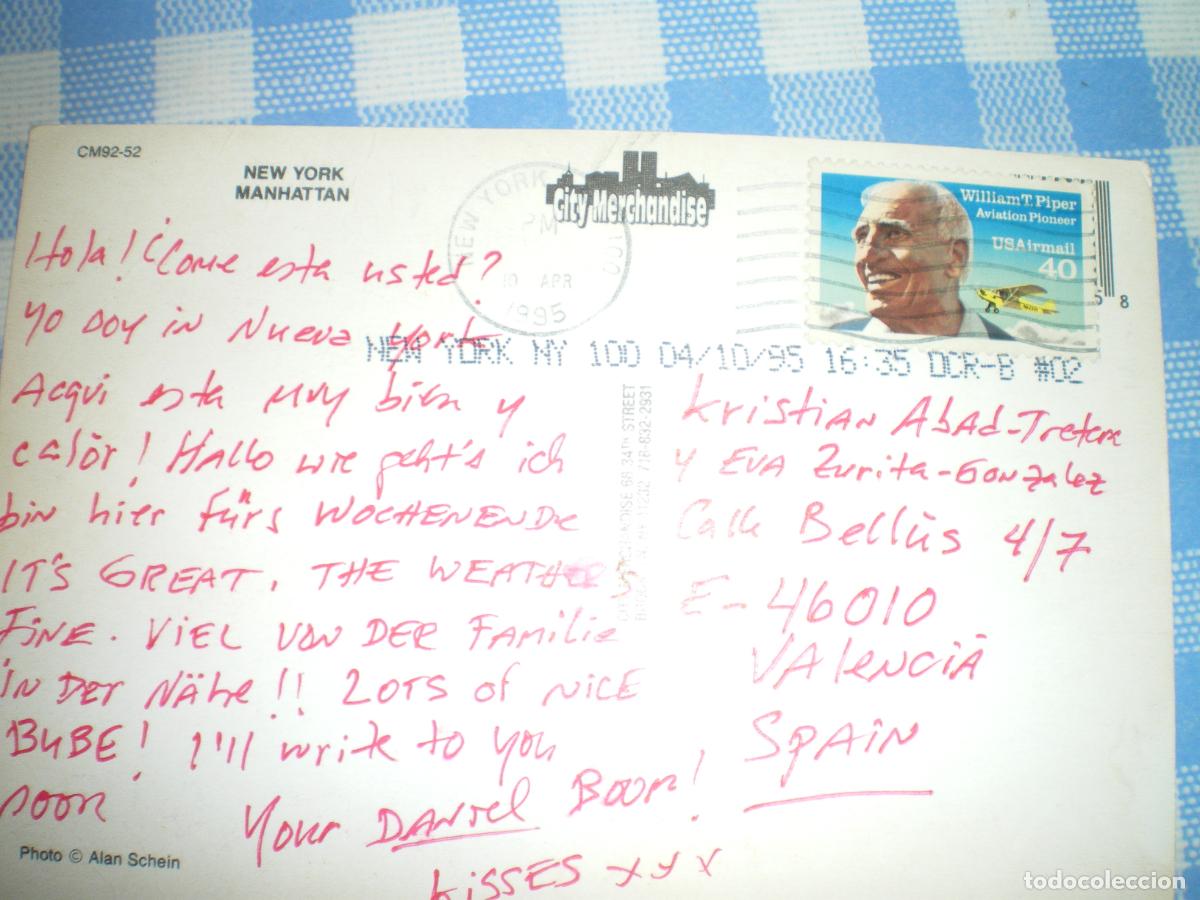 CM92-52
NEW YORK
MANHATTAN
City Merchandise
NEW YORK
PM
10 APR
1995
William T. Piper
Aviation Pioneer
USAirmail
40
58
NEW YORK NY 100 04/10/95 16:35 DCR-B #02
Hola! ¿Come esta usted?
Yo soy in Nueva York
Acqui esta muy bien y
calór! HALLO wie geht's ich
bin hier fürs WOCHENENDE
IT'S GREAT, THE WEATHER
FINE. VIEL VON DER FAMILIE
IN DER NÄHE!! LOTS of NICE
BUBE! I'll write to you
soon
Your DANIEL BOOM!
KISSES xxx
Kristian Abad-
y EVA Zurita-Gonzalez
Calle Bellùs 4/7
E-46010
VALENCIA
SPAIN
68 34TH STREET
11232 718-832-2931
Photo © Alan Schein
todocoleccion